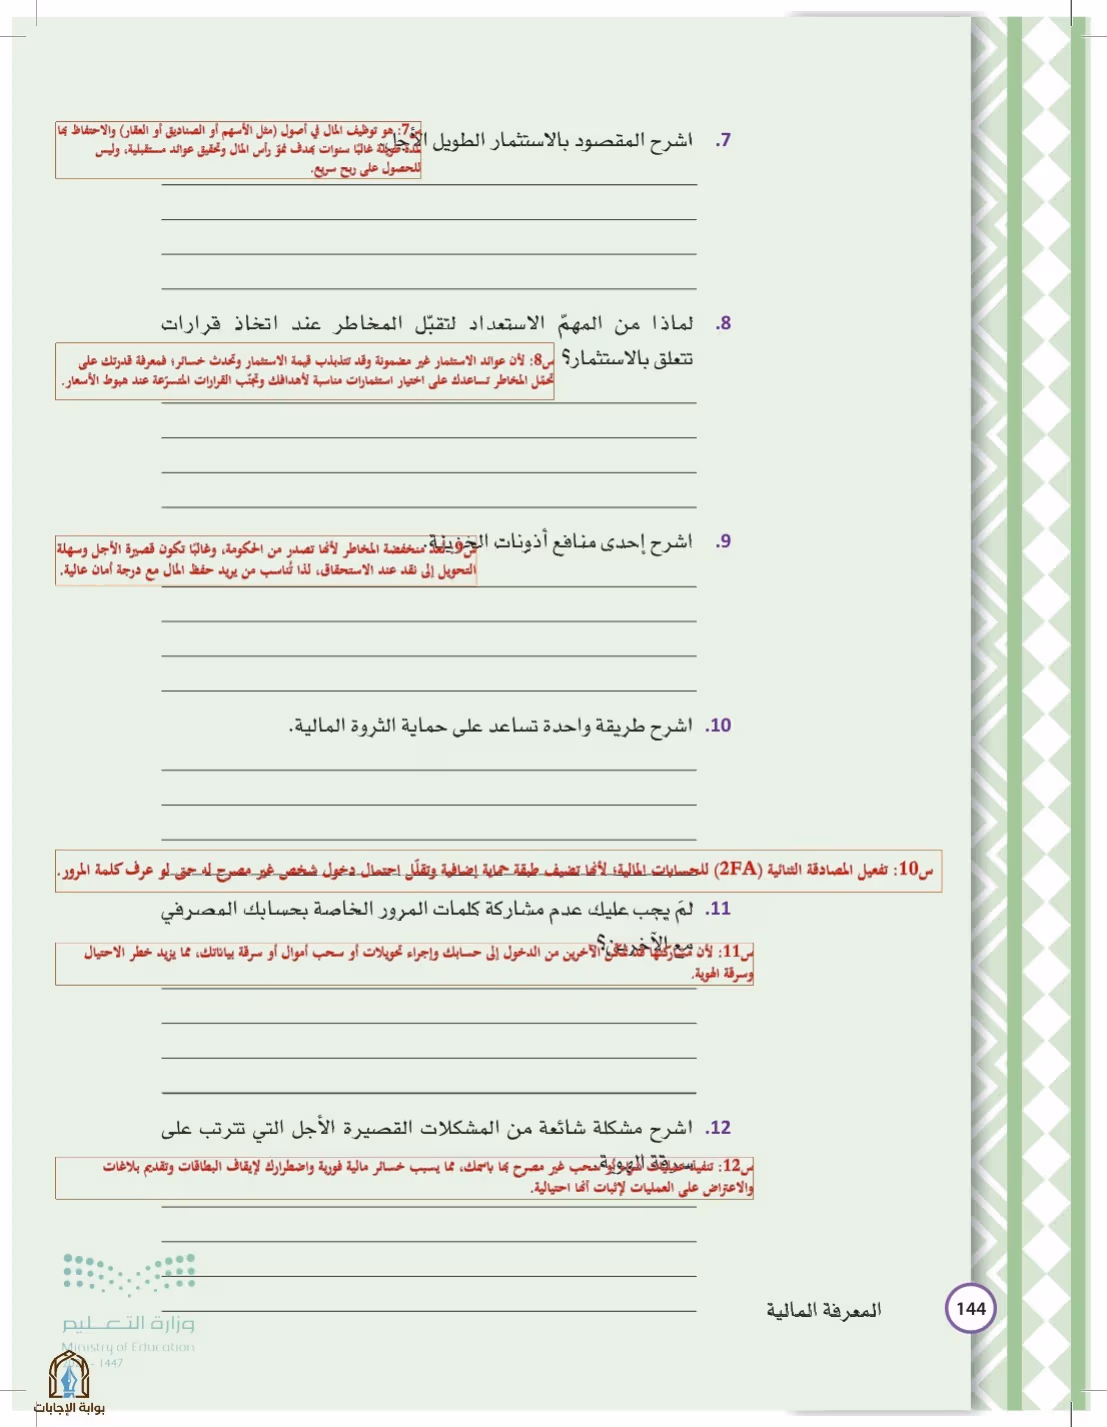 7. اشرح المقصود بالاستثمار الطويل الأجل.
س7: هو توظيف المال في أصول (مثل الأسهم أو الصناديق أو العقار) والاحتفاظ بها
لمدة طويلة غالبًا سنوات بهدف نموّ رأس المال وتحقيق عوائد مستقبلية، وليس
للحصول على ربح سريع.
8. لماذا من المهمّ الاستعداد لتقبّل المخاطر عند اتخاذ قرارات
تتعلق بالاستثمار؟
س8: لأن عوائد الاستثمار غير مضمونة وقد تتذبذب قيمة الاستثمار وتحدث خسائر؛ فمعرفة قدرتك على
تحمّل المخاطر تساعدك على اختيار استثمارات مناسبة لأهدافك وتجنّب القرارات المتسرّعة عند هبوط الأسعار.
9. اشرح إحدى منافع أذونات الخزينة.
س9: تُعد منخفضة المخاطر لأنها تصدر من الحكومة، وغالبًا تكون قصيرة الأجل وسهلة
التحويل إلى نقد عند الاستحقاق، لذا تُناسب من يريد حفظ المال مع درجة أمان عالية.
10. اشرح طريقة واحدة تساعد على حماية الثروة المالية.
س10: تفعيل المصادقة الثنائية (2FA) للحسابات المالية؛ لأنها تضيف طبقة حماية إضافية وتقلّل احتمال دخول شخص غير مصرح له حتى لو عرف كلمة المرور.
11. لمَ يجب عليك عدم مشاركة كلمات المرور الخاصة بحسابك المصرفي
مع الآخرين؟
س11: لأن مشاركتها قد تمكّن الآخرين من الدخول إلى حسابك وإجراء تحويلات أو سحب أموال أو سرقة بياناتك، مما يزيد خطر الاحتيال
وسرقة الهوية.
12. اشرح مشكلة شائعة من المشكلات القصيرة الأجل التي تترتب على
سرقة الهوية.
س12: تنفيذ عمليات شراء أو سحب غير مصرح بها باسمك، مما يسبب خسائر مالية فورية واضطرارك لإيقاف البطاقات وتقديم بلاغات
والاعتراض على العمليات لإثبات أنها احتيالية.
وزارة التعليم
Ministry of Education
- 1447
المعرفة المالية
144
بوابة الإجابات